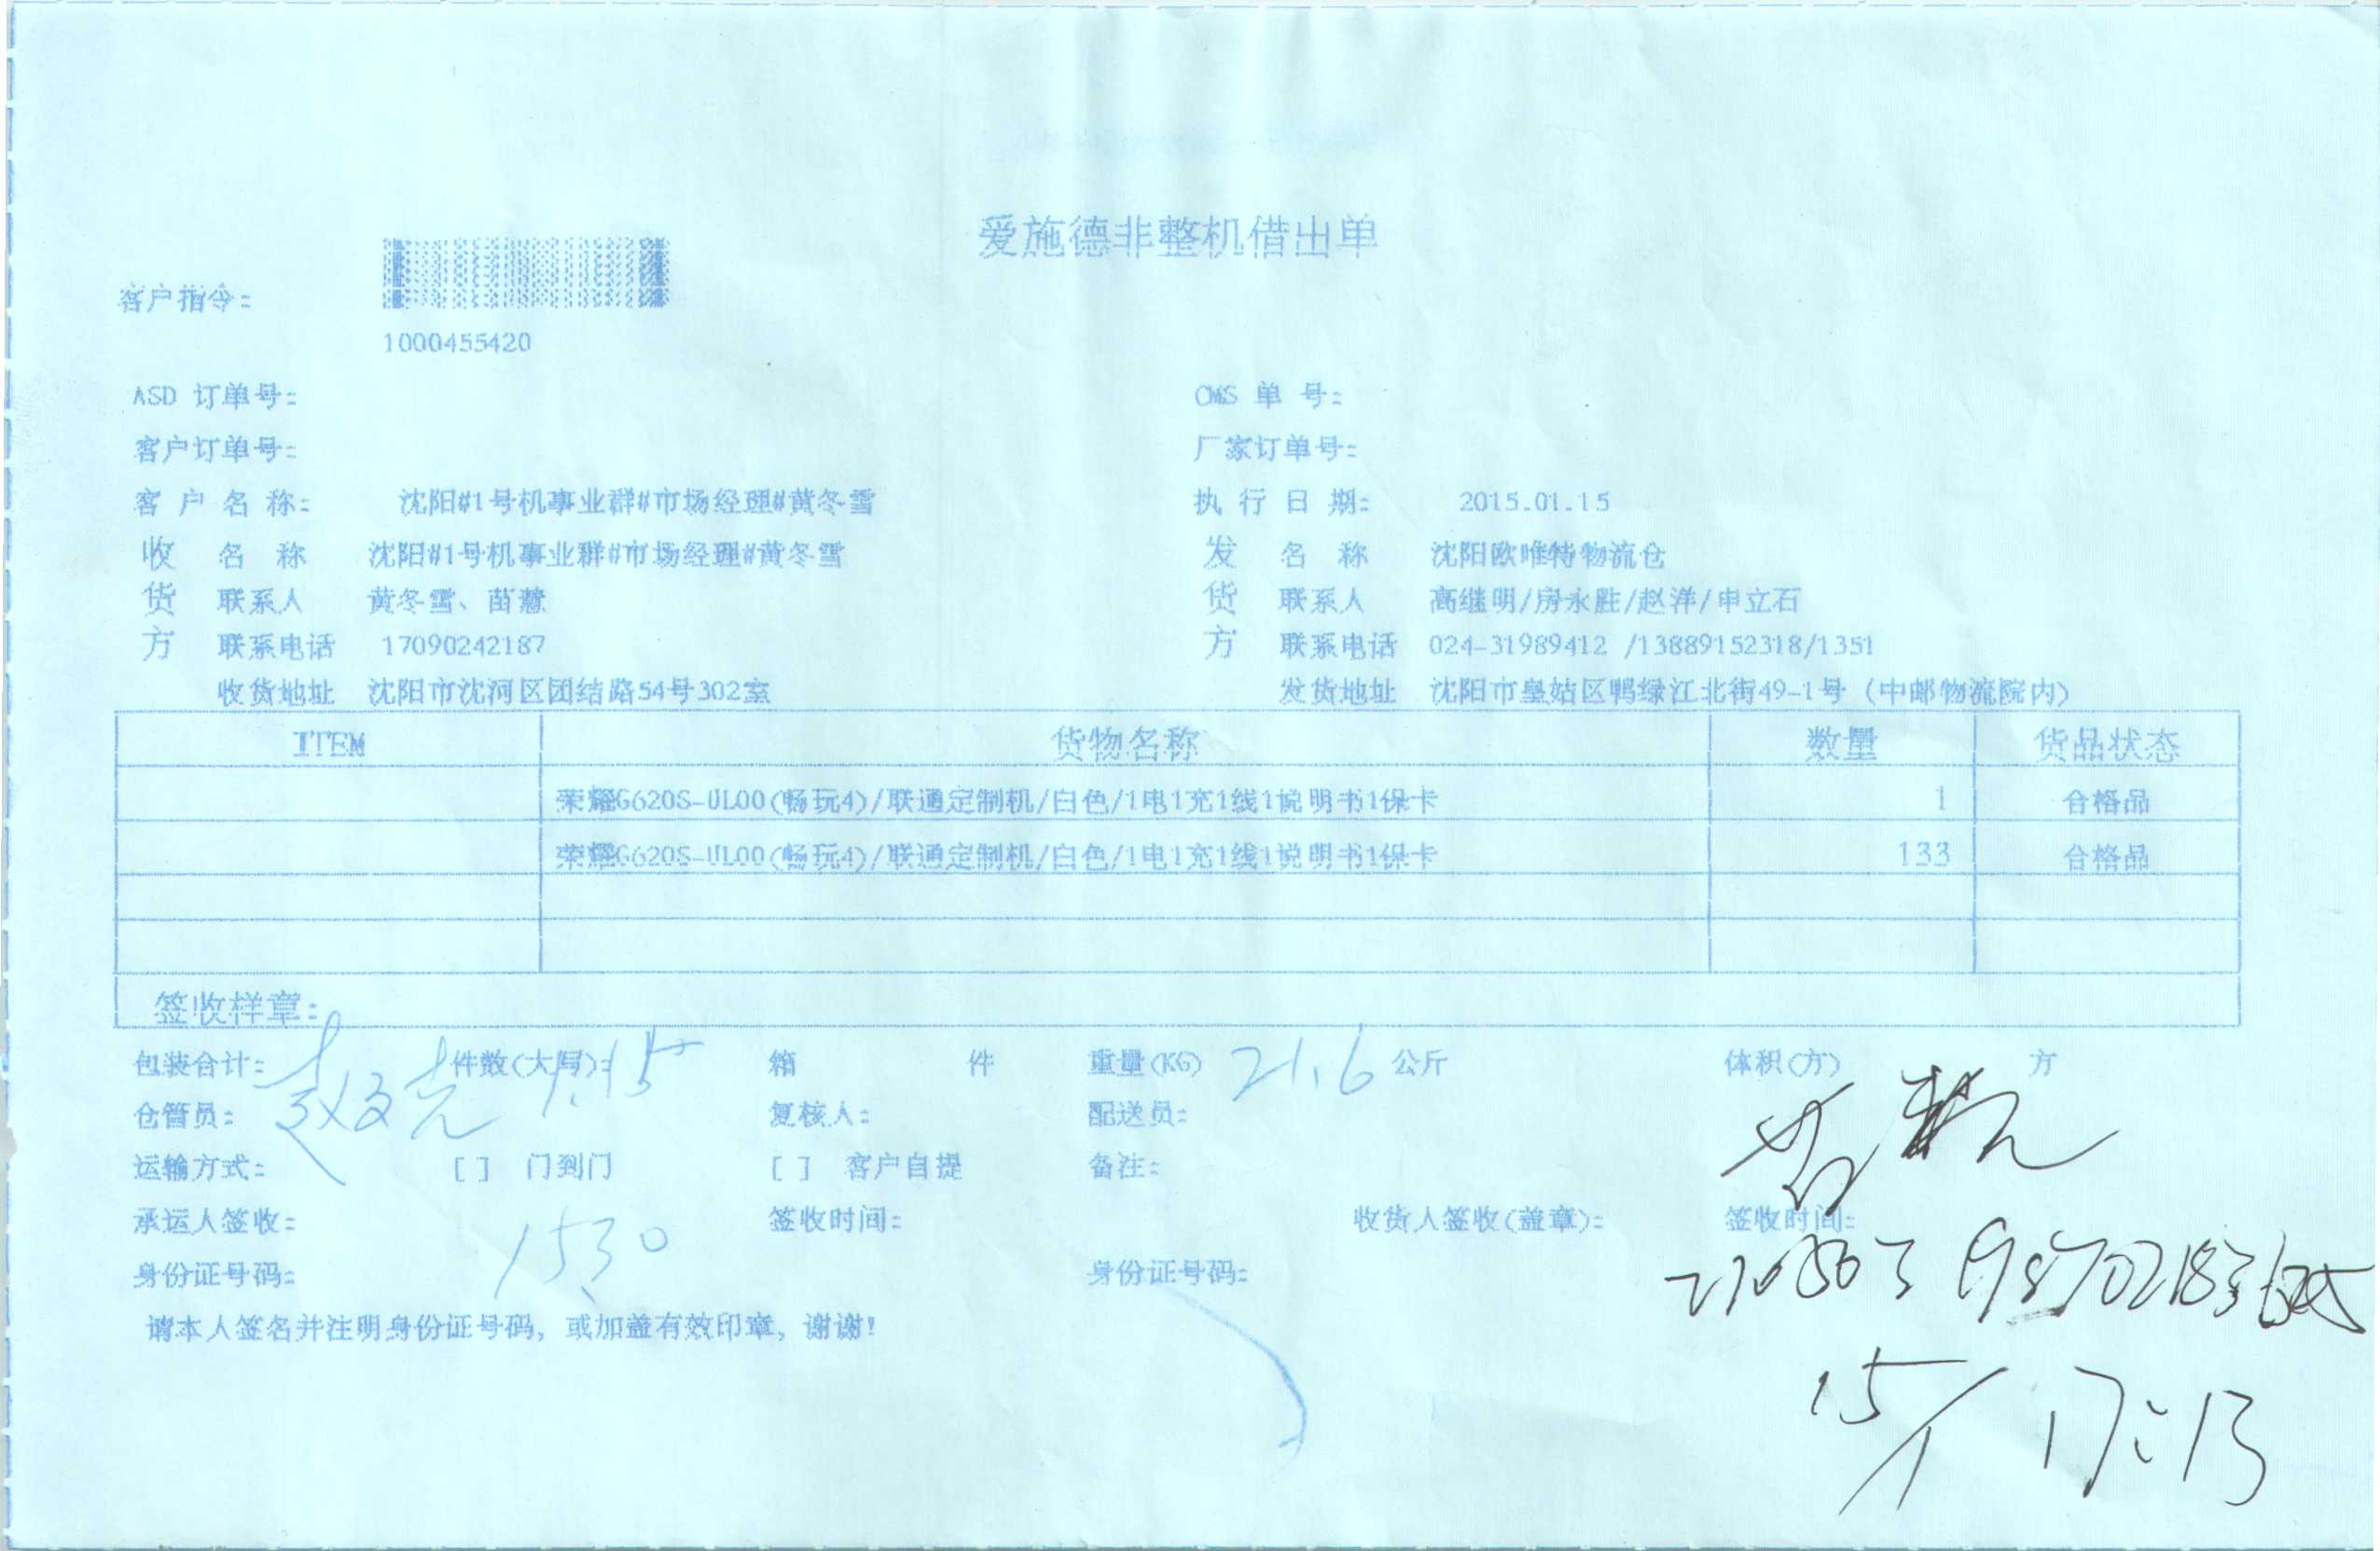 爱施德非整机借出单
客户指令:
1000455420
ASD 订单号:
OMS 单 号:
客户订单号:
厂家订单号:
客 户 名 称: 沈阳#1号机事业群#市场经理#黄冬雪
执 行 日 期: 2015.01.15
收货方 名 称 沈阳#1号机事业群#市场经理#黄冬雪
发货方 名 称 沈阳欧唯特物流仓
联系人 黄冬雪、苗慧
联系人 高继明/房永胜/赵洋/申立石
联系电话 17090242187
联系电话 024-31989412 /13889152318/1351
收货地址 沈阳市沈河区团结路54号302室
发货地址 沈阳市皇姑区鸭绿江北街49-1号 (中邮物流院内)
ITEM 货物名称 数量 货品状态
荣耀G620S-UL00(畅玩4)/联通定制机/白色/1电1充1线1说明书1保卡 1 合格品
荣耀G620S-UL00(畅玩4)/联通定制机/白色/1电1充1线1说明书1保卡 133 合格品
签收样章:
包装合计: 件数(大写): 箱 件 重量(KG) 21.6 公斤 体积(方) 方
1.15
仓管员: 复核人: 配送员:
运输方式: [ ] 门到门 [ ] 客户自提 备注:
承运人签收: 签收时间: 收货人签收(盖章): 签收时间:
1530
身份证号码: 身份证号码:
请本人签名并注明身份证号码, 或加盖有效印章, 谢谢!
15/1 17:13